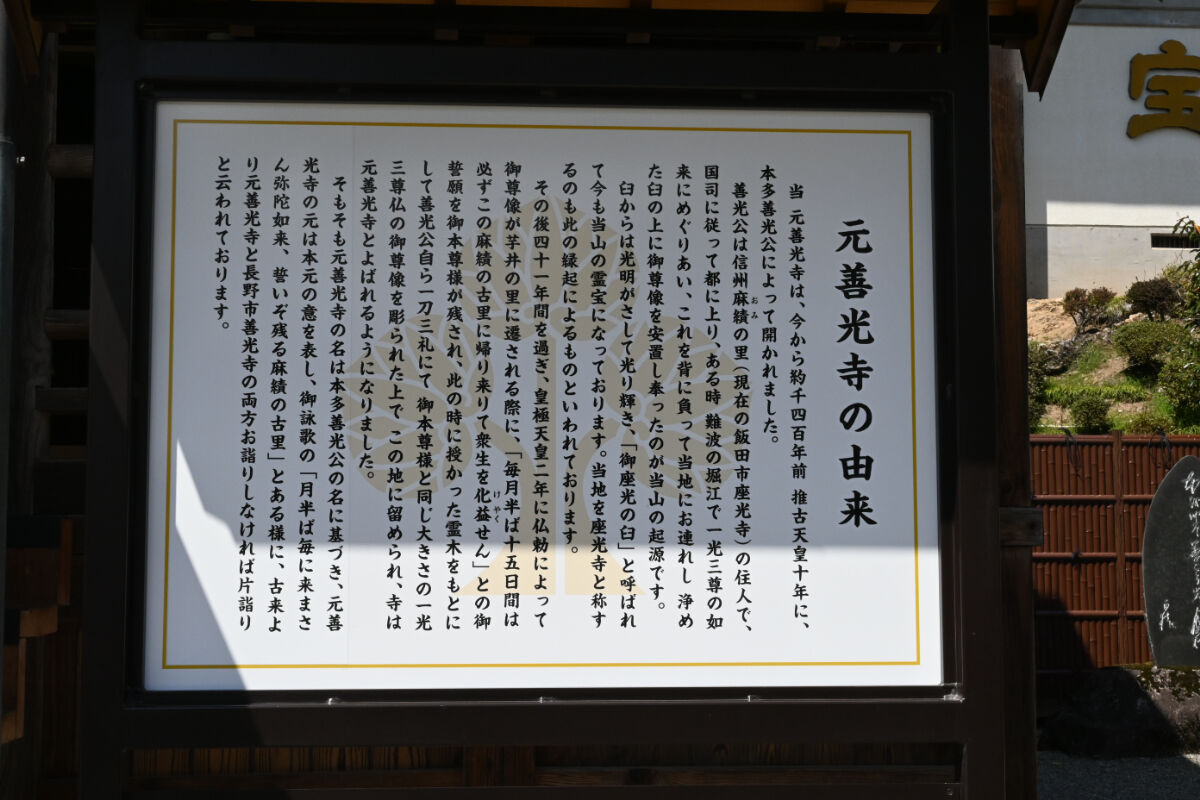 元善光寺の由来
当 元善光寺は、今から約千四百年前 推古天皇十年に、
本多善光公によって開かれました。
善光公は信州麻績の里（現在の飯田市座光寺）の住人で、
おみ
国司に従って都に上り、ある時 難波の堀江で一光三尊の如
来にめぐりあい、これを背に負って当地にお連れし 浄め
た臼の上に御尊像を安置し奉ったのが当山の起源です。
臼からは光明がさして光り輝き、「御座光の臼」と呼ばれ
て今も当山の霊宝になっております。当地を座光寺と称す
るのも此の縁起によるものといわれております。
その後四十一年間を過ぎ、皇極天皇二年に仏勅によって
御尊像が芋井の里に遷される際に、「毎月半ば十五日間は
必ずこの麻績の古里に帰り来りて衆生を化益せん」との御
けやく
誓願を御本尊様が残され、此の時に授かった霊木をもとに
して善光公自ら一刀三礼にて 御本尊様と同じ大きさの一光
三尊仏の御尊像を彫られた上で この地に留められ、寺は
元善光寺とよばれるようになりました。
そもそも元善光寺の名は本多善光公の名に基づき、元善
光寺の元は本元の意を表し、御詠歌の「月半ば毎に来まさ
ん弥陀如来、誓いぞ残る麻績の古里」とある様に、古来よ
り元善光寺と長野市善光寺の両方お詣りしなければ片詣り
と云われております。
宝